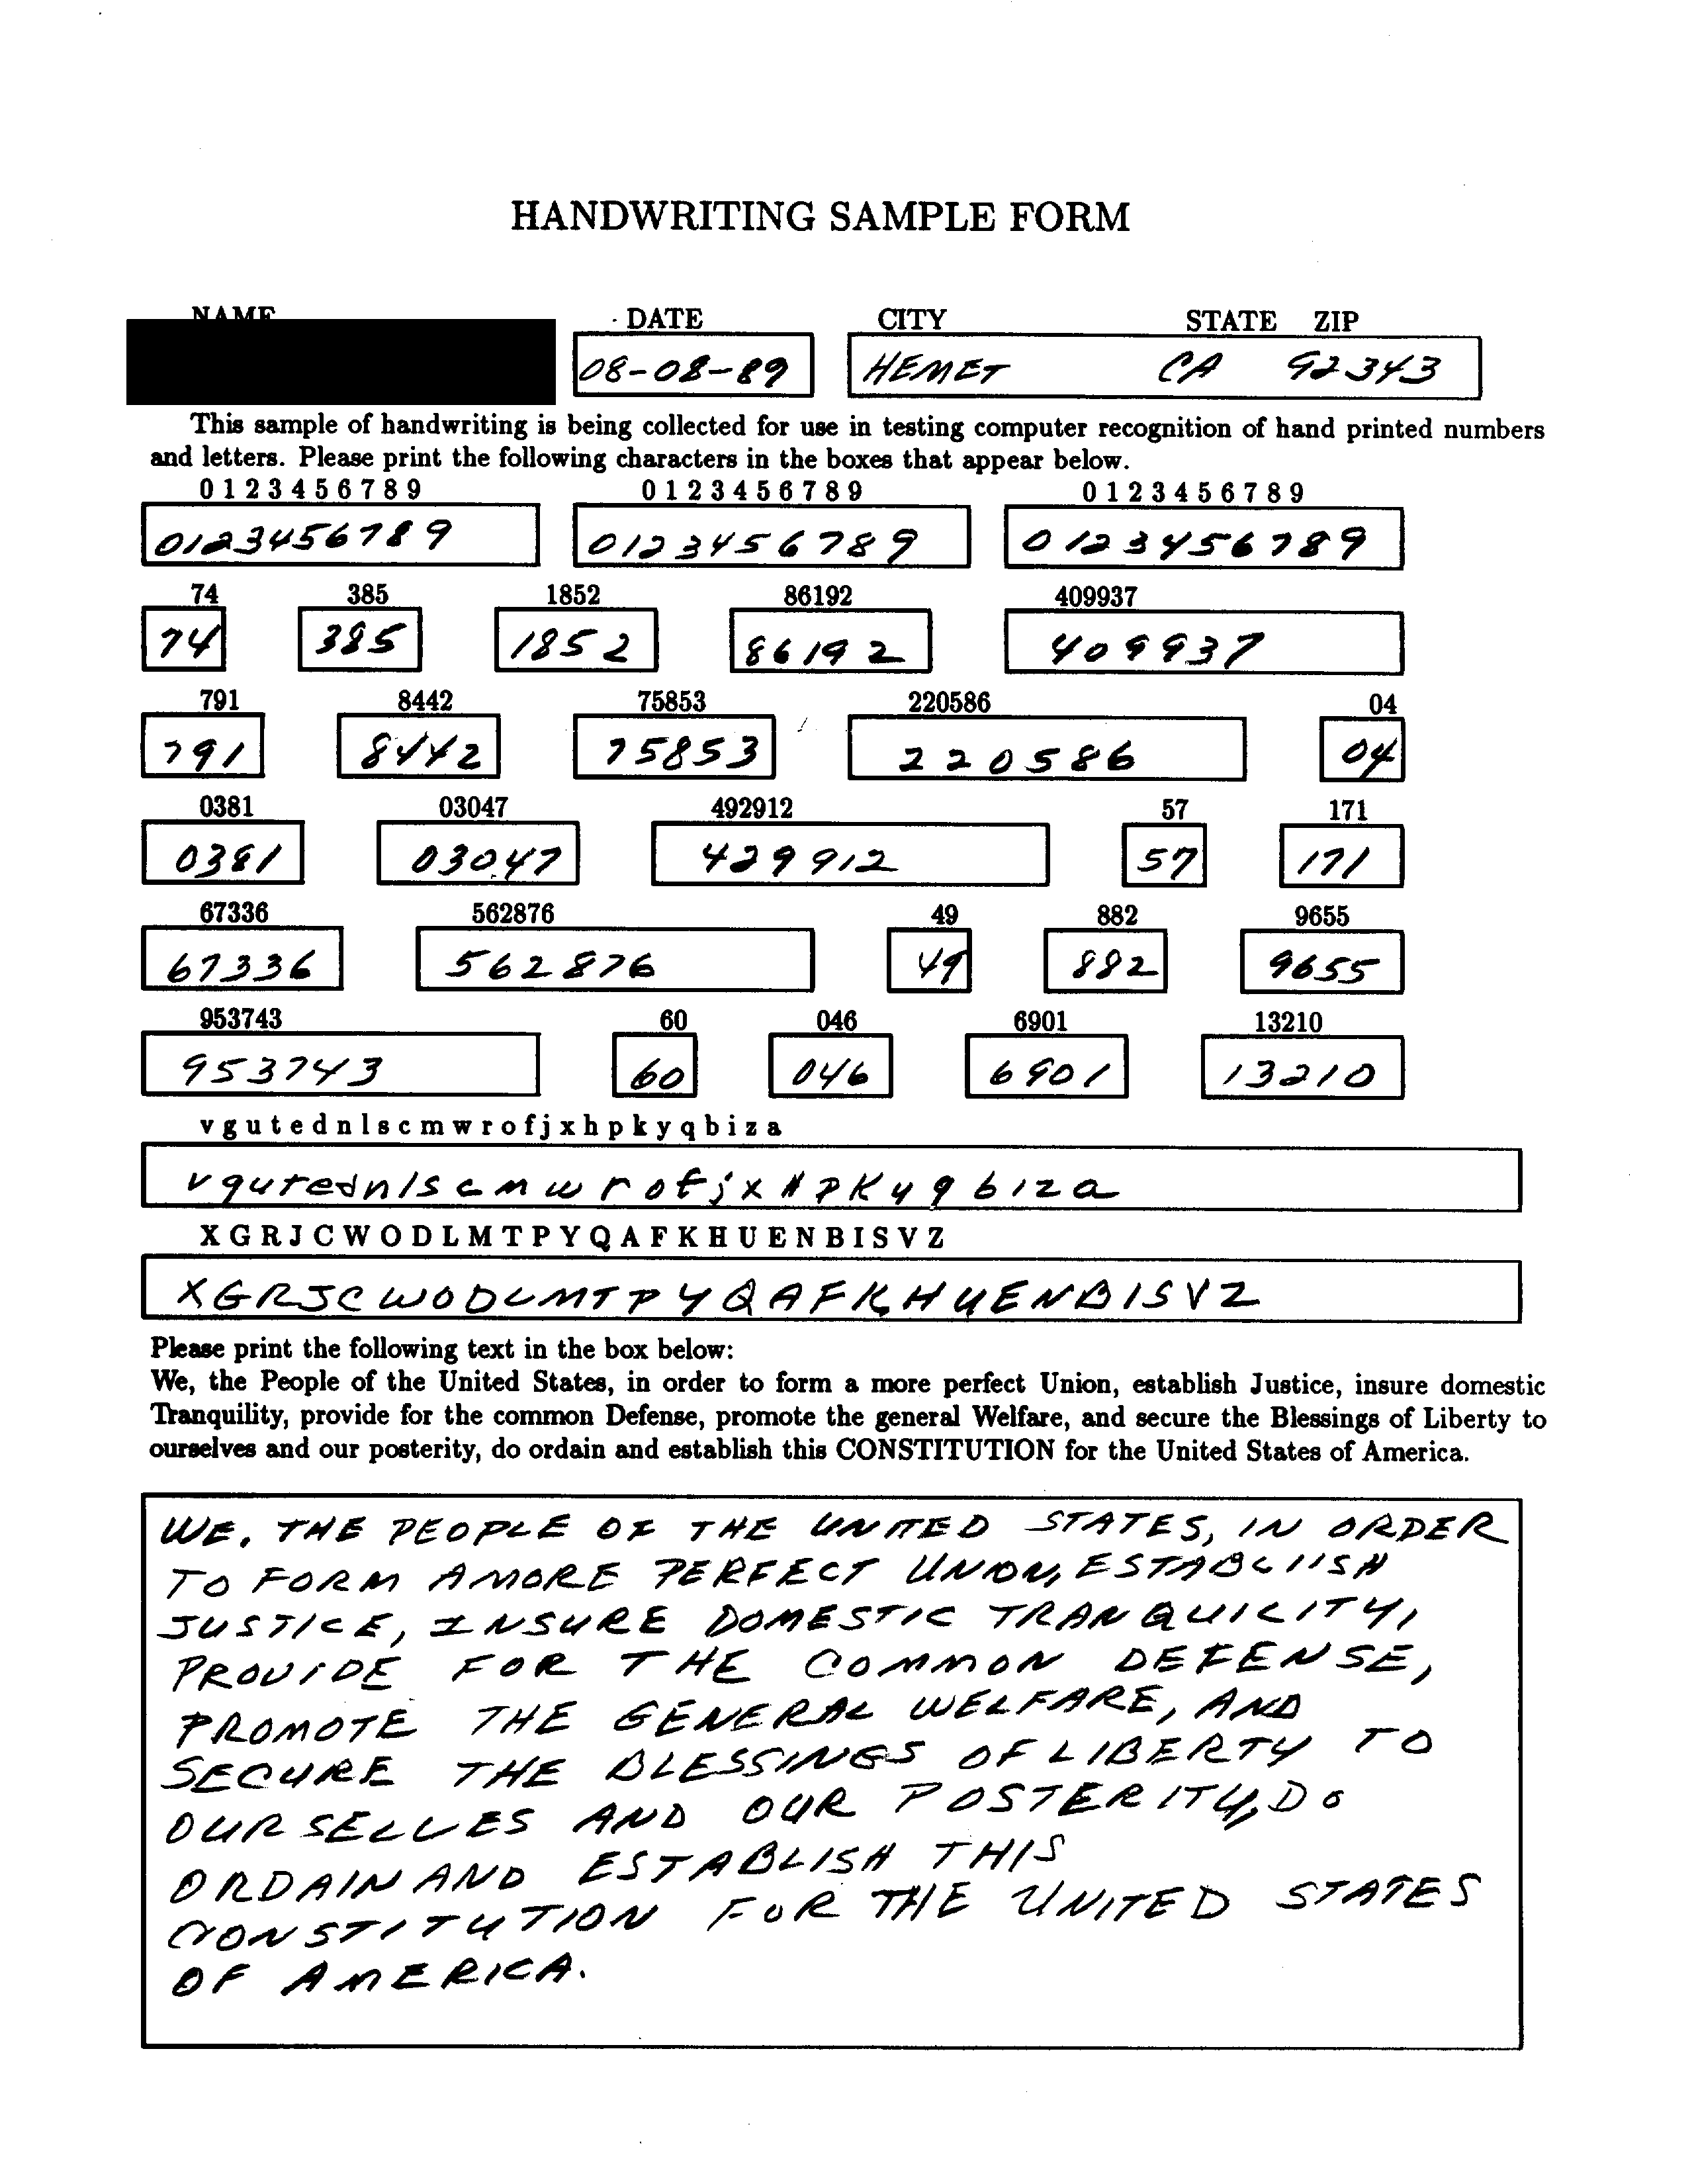 HANDWRITING SAMPLE FORM
NAME DATE CITY STATE ZIP
08-08-89 HEMET CA 92343
This sample of handwriting is being collected for use in testing computer recognition of hand printed numbers
and letters. Please print the following characters in the boxes that appear below.
0 1 2 3 4 5 6 7 8 9 0 1 2 3 4 5 6 7 8 9 0 1 2 3 4 5 6 7 8 9
0123456789 0123456789 0123456789
74 385 1852 86192 409937
74 385 1852 86192 409937
791 8442 75853 220586 04
791 8442 75853 220586 04
0381 03047 492912 57 171
0381 03047 429912 57 171
67336 562876 49 882 9655
67336 562876 49 882 9655
953743 60 046 6901 13210
953743 60 046 6901 13210
v g u t e d n l s c m w r o f j x h p k y q b i z a
v g u t e d n l s c m w r o f j x H P K y q b i z a
X G R J C W O D L M T P Y Q A F K H U E N B I S V Z
X G R J C W O D L M T P Y Q A F K H U E N B I S V Z
Please print the following text in the box below:
We, the People of the United States, in order to form a more perfect Union, establish Justice, insure domestic
Tranquility, provide for the common Defense, promote the general Welfare, and secure the Blessings of Liberty to
ourselves and our posterity, do ordain and establish this CONSTITUTION for the United States of America.
WE, THE PEOPLE OF THE UNITED STATES, IN ORDER
TO FORM A MORE PERFECT UNION, ESTABLIISH
JUSTICE, INSURE DOMESTIC TRANQUILITY,
PROVIDE FOR THE COMMON DEFENSE,
PROMOTE THE GENERAL WELFARE, AND
SECURE THE BLESSINGS OF LIBERTY TO
OURSELLVES AND OUR POSTERITY, DO
ORDAIN AND ESTABLISH THIS
CONSTITUTION FOR THE UNITED STATES
OF AMERICA.